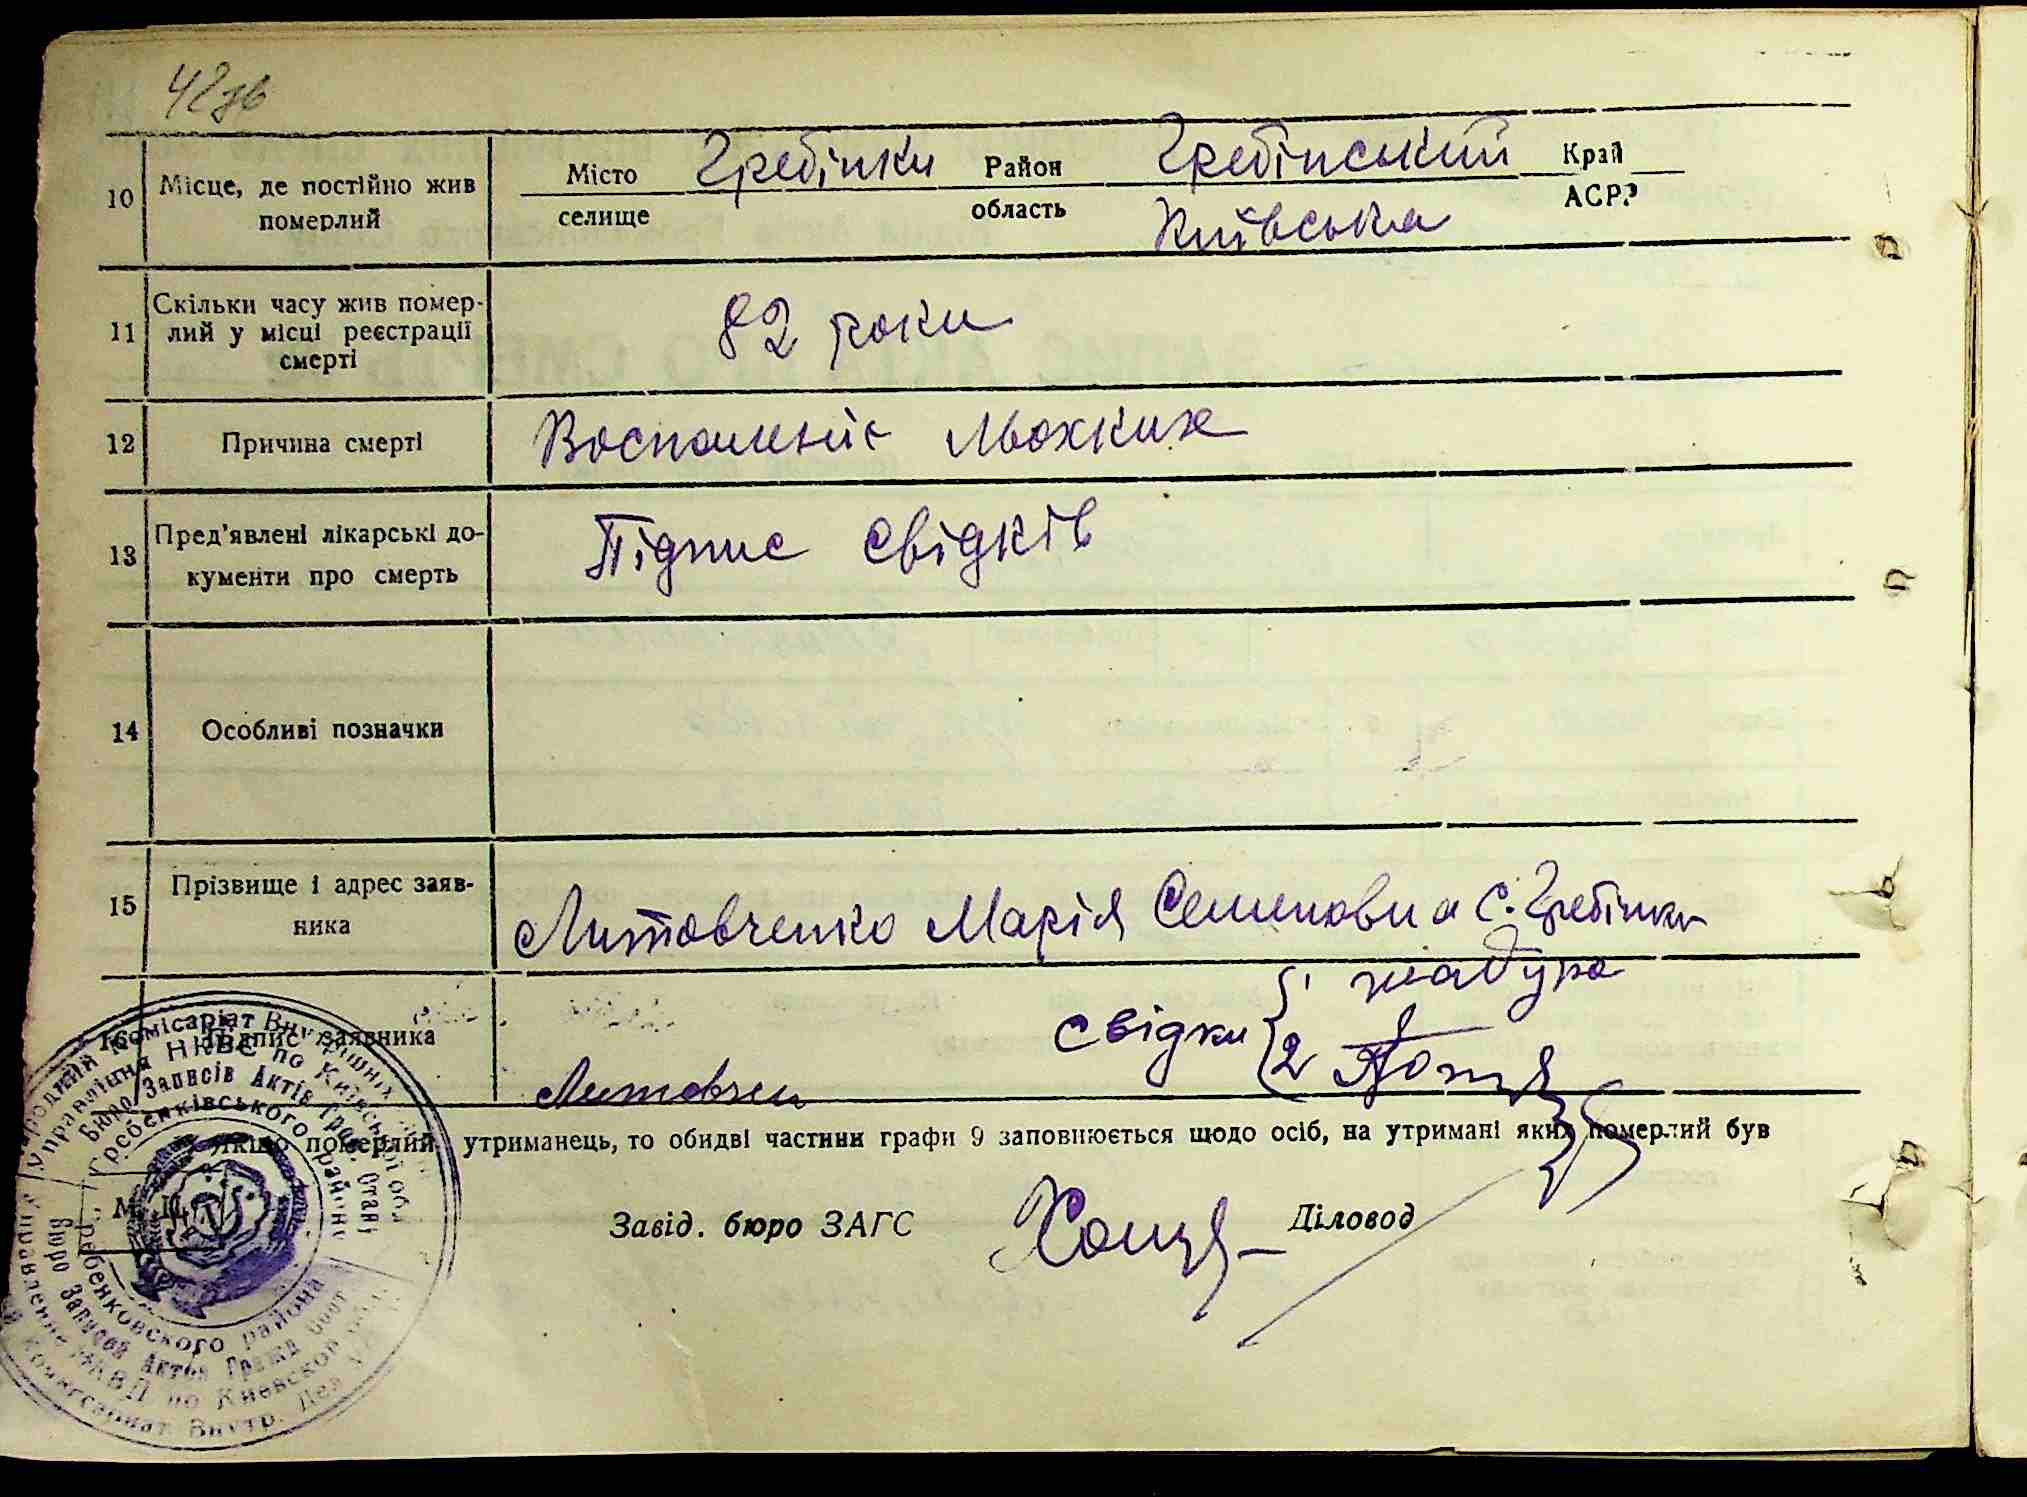 42зв
10 Місце, де постійно жив померлий Місто Гребінки Район Гребінський Край
селище область Київська АСРР
11 Скільки часу жив помер-
лий у місці реєстрації
смерті
82 роки
12 Причина смерті Воспаленіє Льохких
13 Пред'явлені лікарські до-
кументи про смерть
Підпис свідків
14 Особливі позначки
15 Прізвище і адрес заяв-
ника
Литовченко Марія Семеновна с. Гребінки
16 Підпис заявника
Литовчен
свідки
1
2
Якщо померлий утриманець, то обидві частини графи 9 заповнюється щодо осіб, на утримані яких померлий був
М. П.
Завід. бюро ЗАГС
Діловод
Народний Комісаріат Внутрішніх
Управління НКВС по Київській обл
Бюро Записів Актів Гром. Стані
Гребенківського району
Гребенковского района
Бюро Записей Актов Гражд Сост
Управление НКВД по Киевской обл
Комиссариат Внутр. Дел